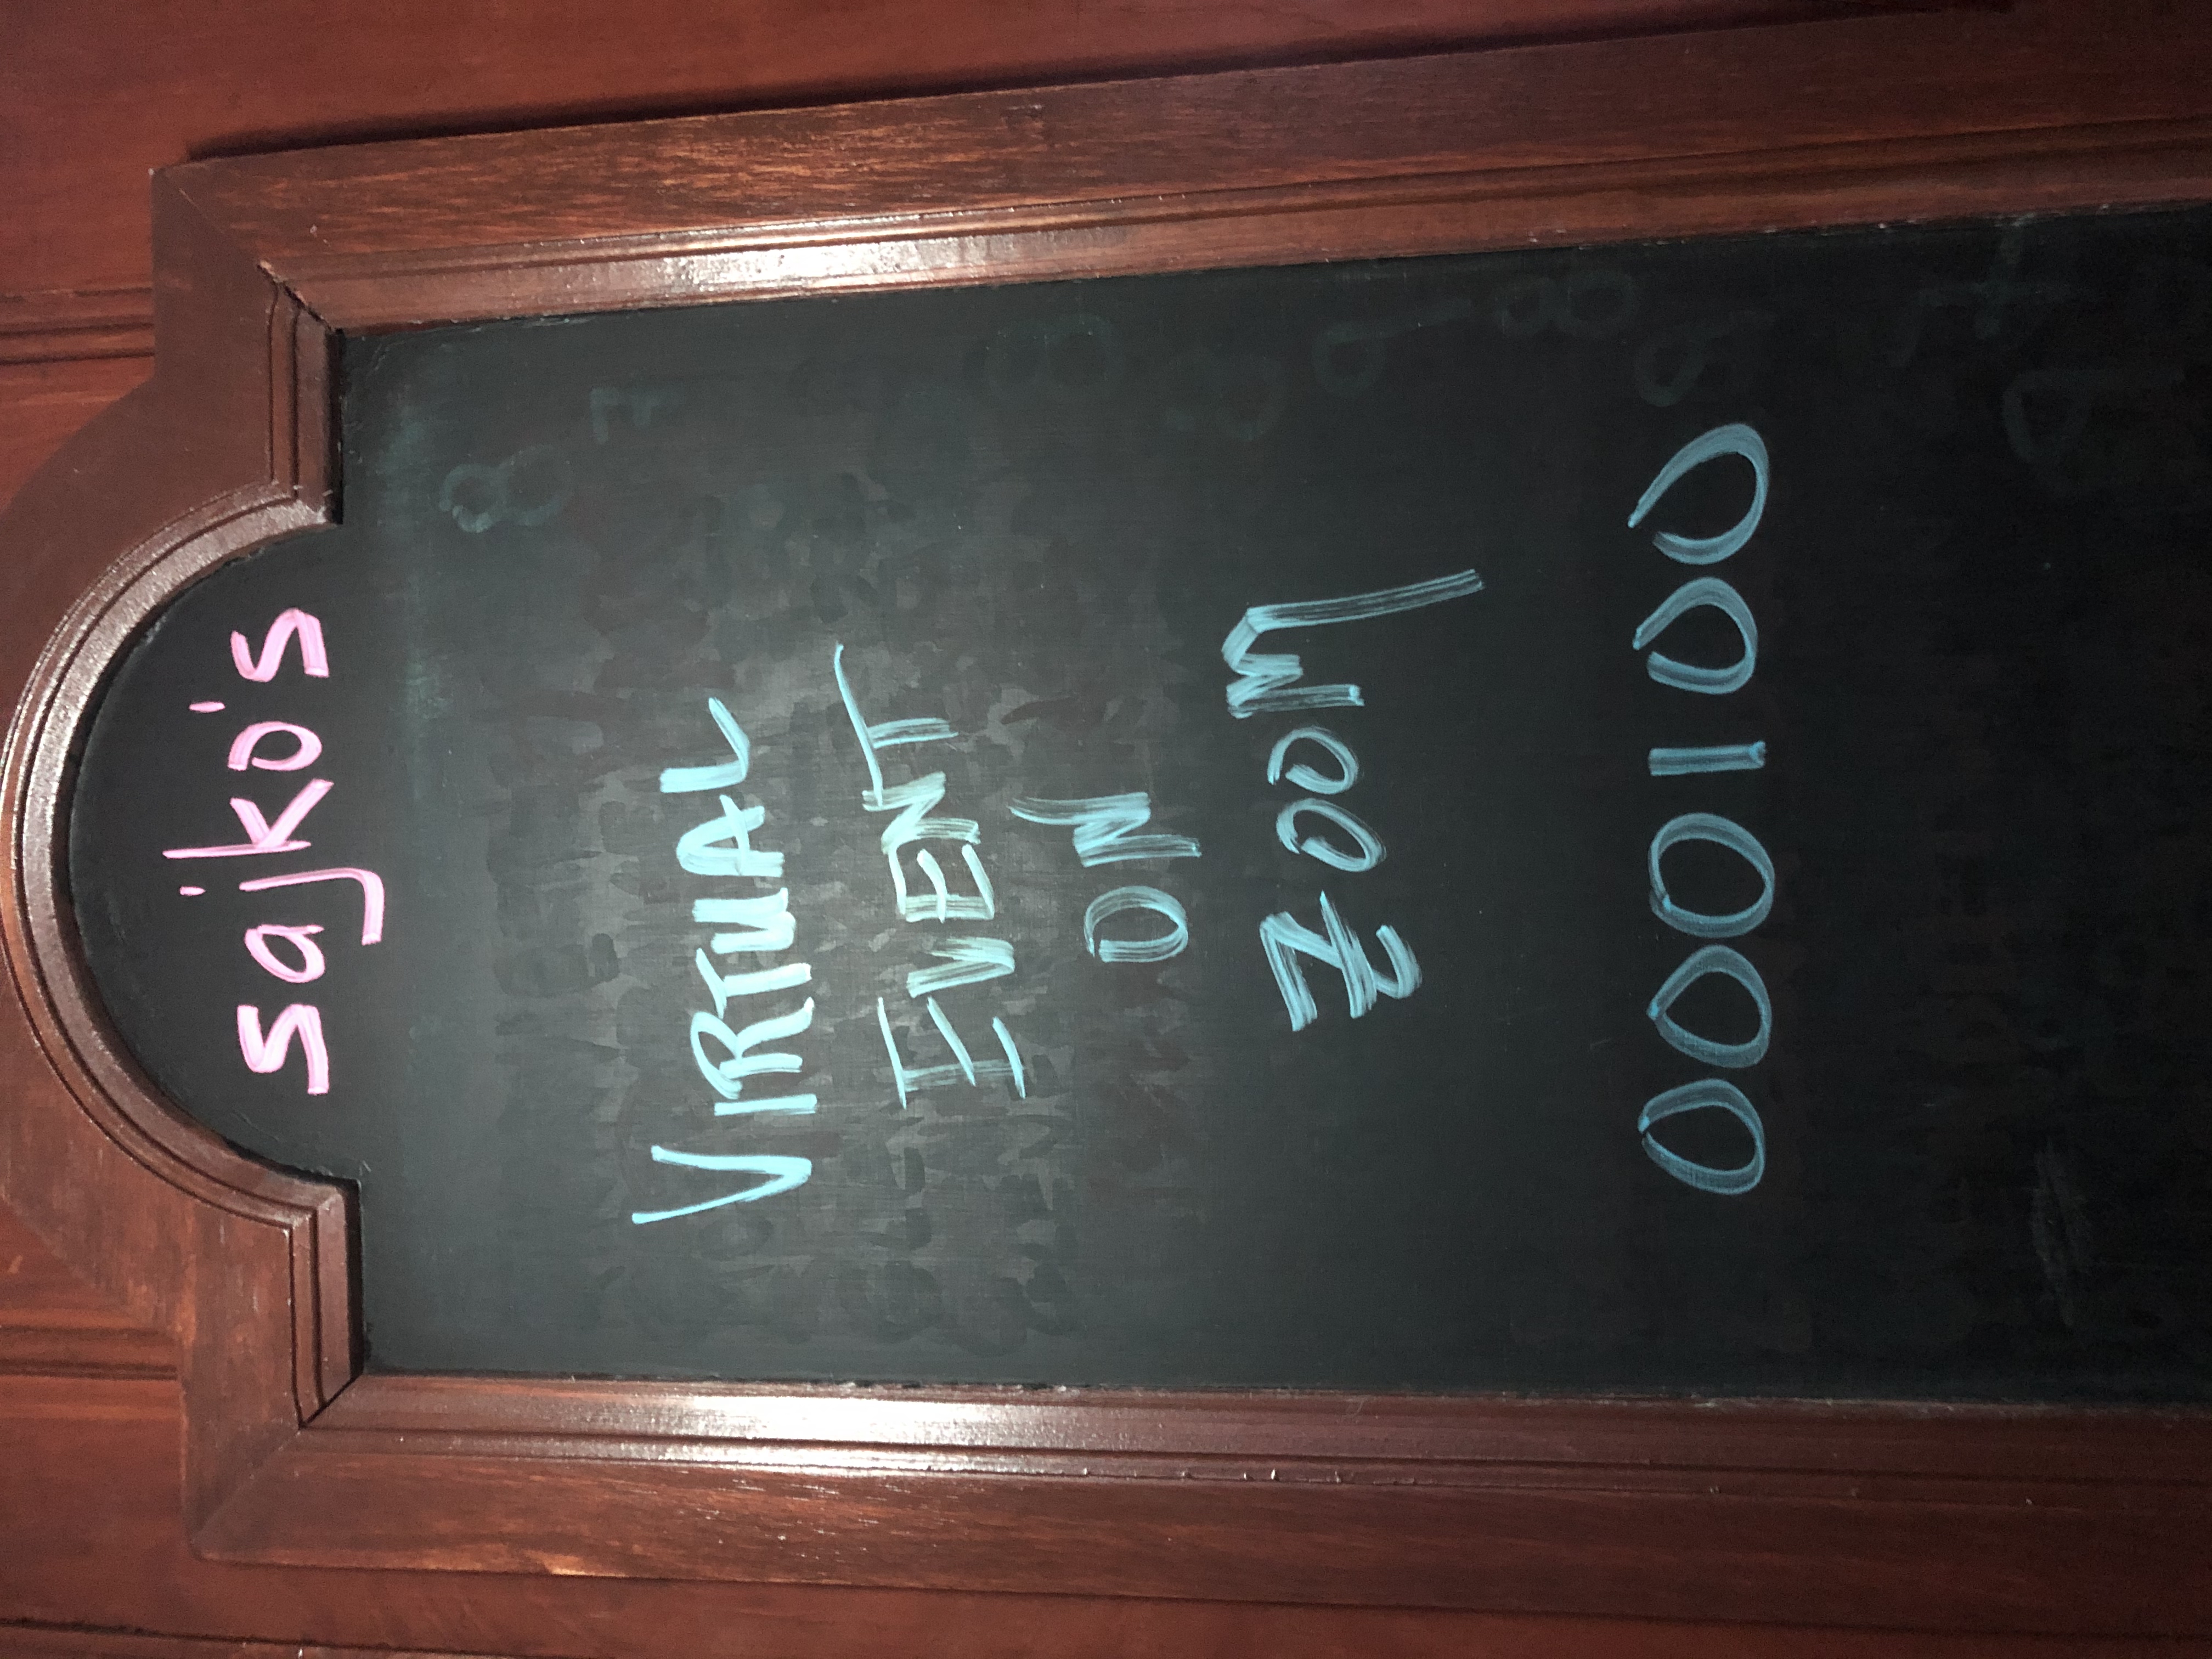 sajko's
VIRTUAL
EVENT
ON
ZOOM
000100